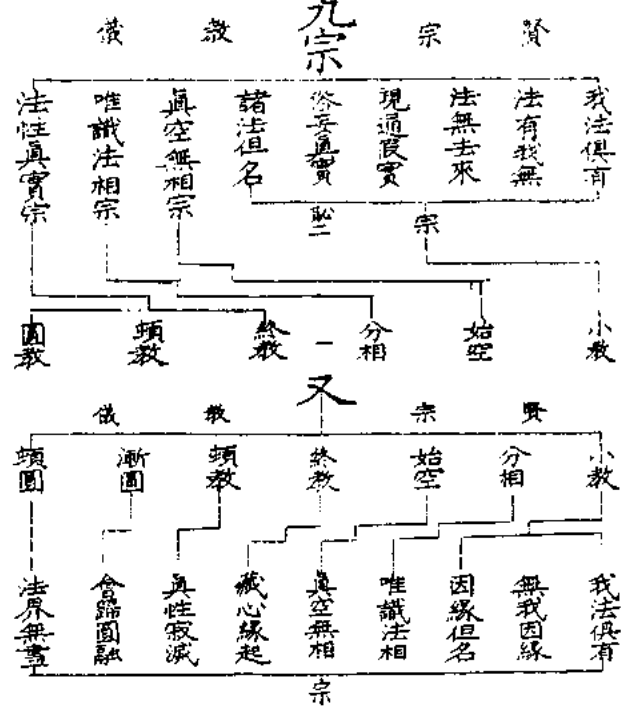 九宗
賢宗教儀
我法俱有
法有我無
法無去來
現通假實
俗妄眞實
諸法但名
眞空無相宗
唯識法相宗
法性眞實宗
宗
恥二
小教
始空
分相
終教
頓教
圓教
一
又
賢宗教儀
小教
分相
始空
終教
頓教
漸圓
頓圓
我法俱有
無我因緣
因緣但名
唯識法相
眞空無相
藏心緣起
眞性寂滅
會歸圓融
法界無盡
宗